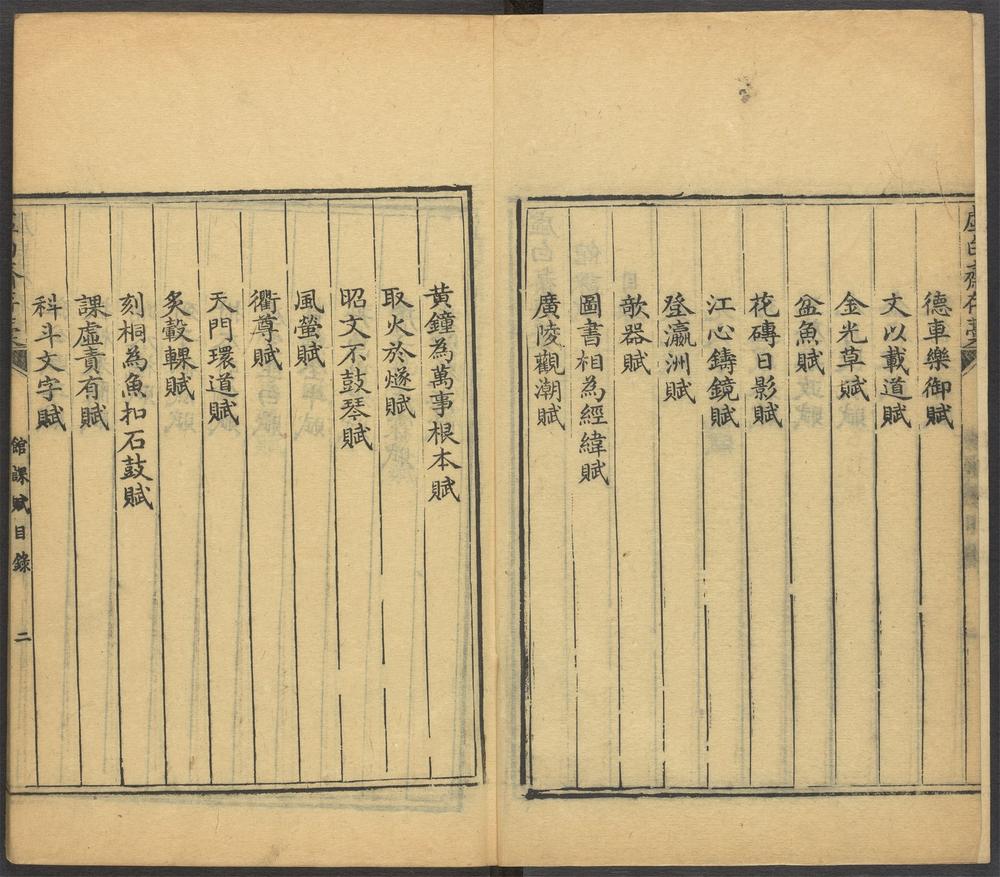 虛白齋存藁
德車樂御賦
文以載道賦
金光草賦
盆魚賦
花磚日影賦
江心鑄鏡賦
登瀛洲賦
欹器賦
圖書相為經緯賦
廣陵觀潮賦
黃鐘為萬事根本賦
取火於燧賦
昭文不鼓琴賦
風螢賦
衢尊賦
天門環道賦
炙轂輠賦
刻桐為魚扣石鼓賦
課虛責有賦
科斗文字賦
館課賦目錄
二